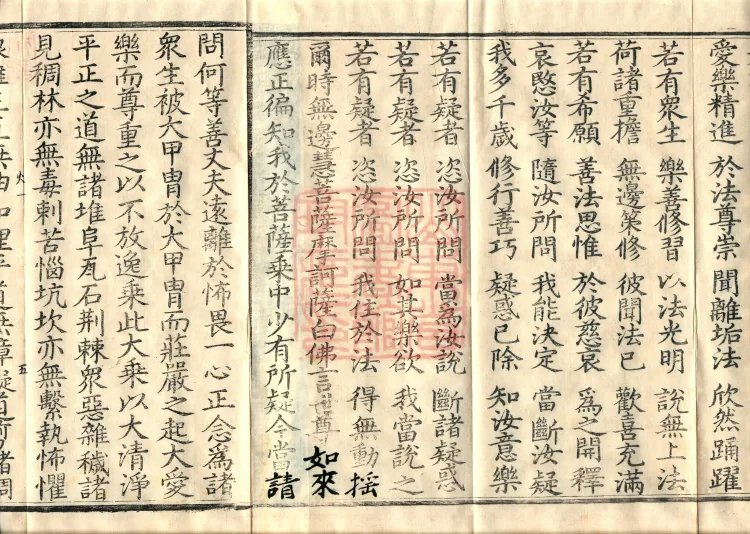 愛樂精進 於法尊崇 聞離垢法 欣然踊躍
若有衆生 樂善修習 以法光明 說無上法
荷諸重擔 無邊築修 彼聞法已 歡喜充滿
若有希願 善法思惟 於彼慈哀 爲之開釋
哀愍汝等 隨汝所問 我能決定 當斷汝疑
我多千歲 修行善巧 疑惑已除 知汝意樂
若有疑者 恣汝所問 當爲汝說 斷諸疑惑
若有疑者 恣汝所問 如其樂欲 我當說之
若有疑者 恣汝所問 我住於法 得無動搖
爾時無邊慧菩薩摩訶薩白佛言世尊如來
應正徧知我於菩薩乘中少有所疑今當請
問何等善丈夫遠離於怖畏一心正念爲諸
衆生被大甲冑於大甲冑而莊嚴之起大愛
樂而尊重之以不放逸乘此大乘以大清淨
平正之道無諸堆阜瓦石荆棘衆惡雜穢諸
見稠林亦無毒刺苦惱坑坎亦無繫執怖懼
火一
五